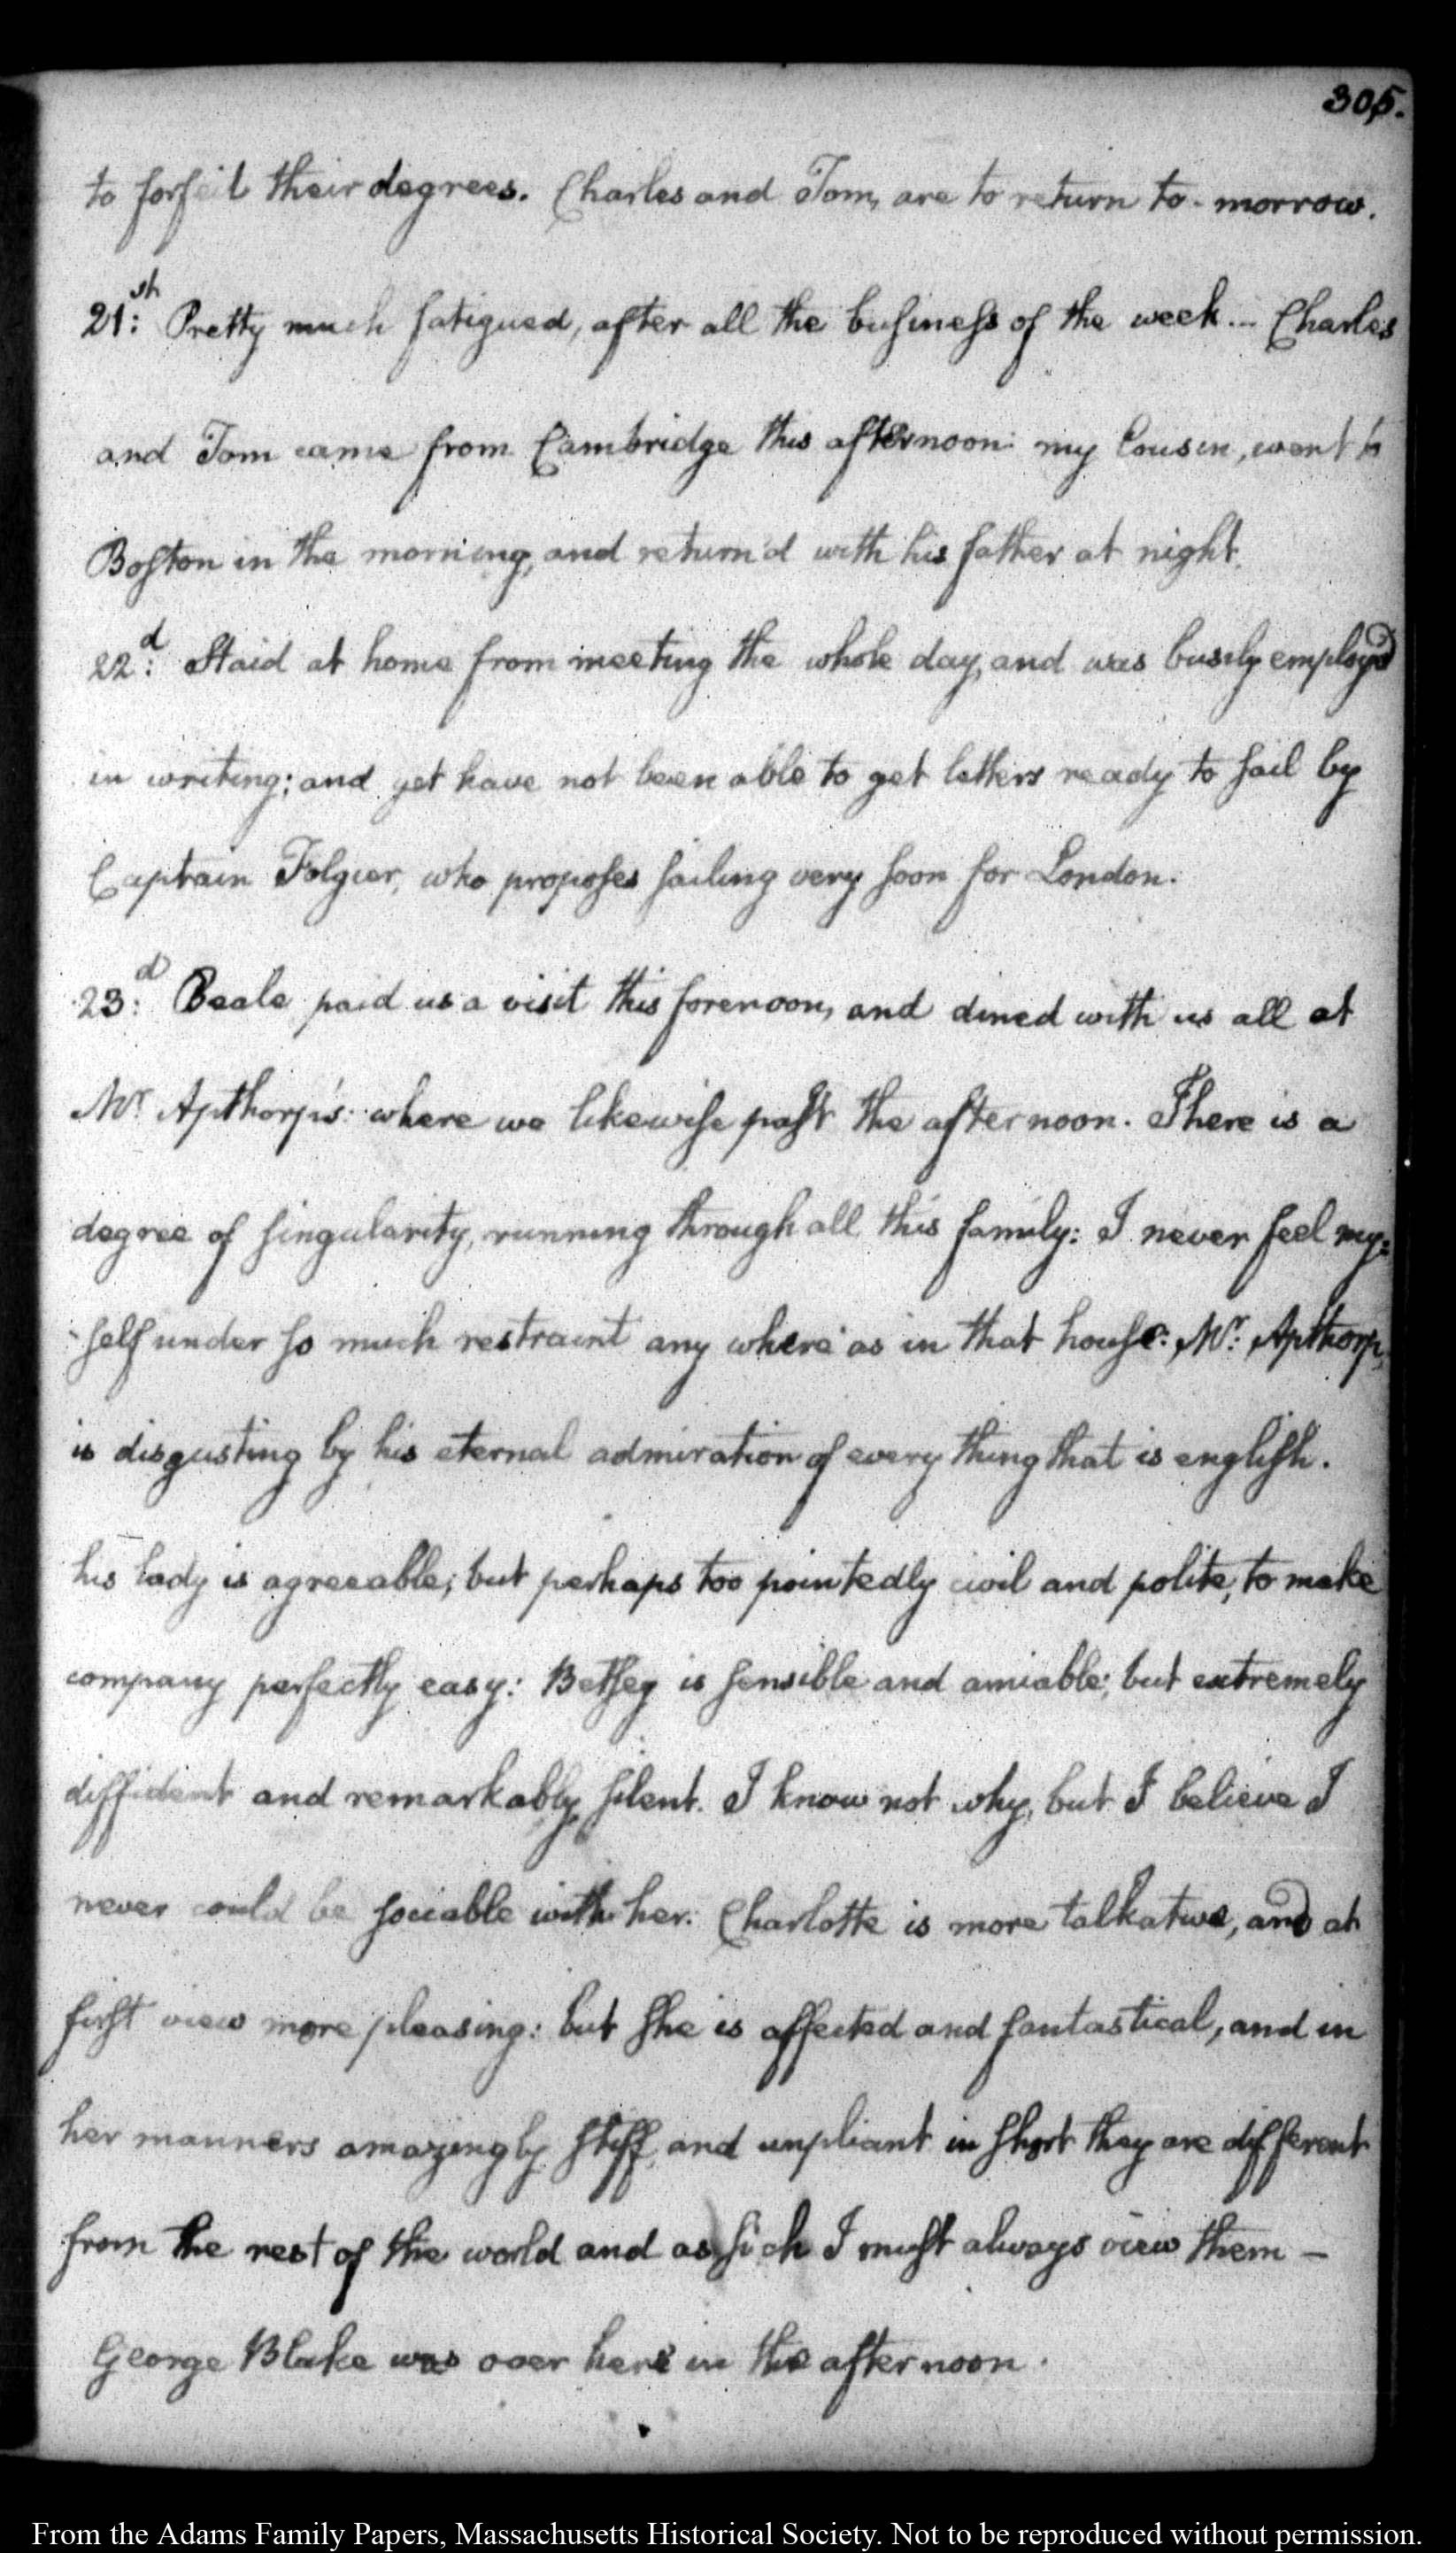 305.
to forfeit their degrees. Charles and Tom, are to return to-morrow.
21:st Pretty much fatigued, after all the business of the week... Charles
and Tom came from Cambridge this afternoon: my Cousin, went to
Boston in the morning, and return'd with his father at night.
22:d Staid at home from meeting the whole day, and was busily employ'd
in writing; and yet have not been able to get letters ready to sail by
Captain Folgier, who proposes sailing very soon for London.
23:d Beale paid us a visit this forenoon, and dined with us all at
Mr. Apthorp's: where we likewise past the afternoon. There is a
degree of singularity, running through all this family: I never feel my=
-self under so much restraint any where as in that house: Mr. Apthorp,
is disgusting by his eternal admiration of every thing that is english.
his lady is agreeable; but perhaps too pointedly civil and polite, to make
company perfectly easy: Betsey is sensible and amiable; but extremely
diffident and remarkably silent. I know not why, but I believe I
never could be sociable with her. Charlotte is more talkative, and at
first view more pleasing: but she is affected and fantastical, and in
her manners amazingly stiff, and unpliant in short they are different
from the rest of the world and as such I must always view them —
George Blake was over here in the afternoon.
From the Adams Family Papers, Massachusetts Historical Society. Not to be reproduced without permission.